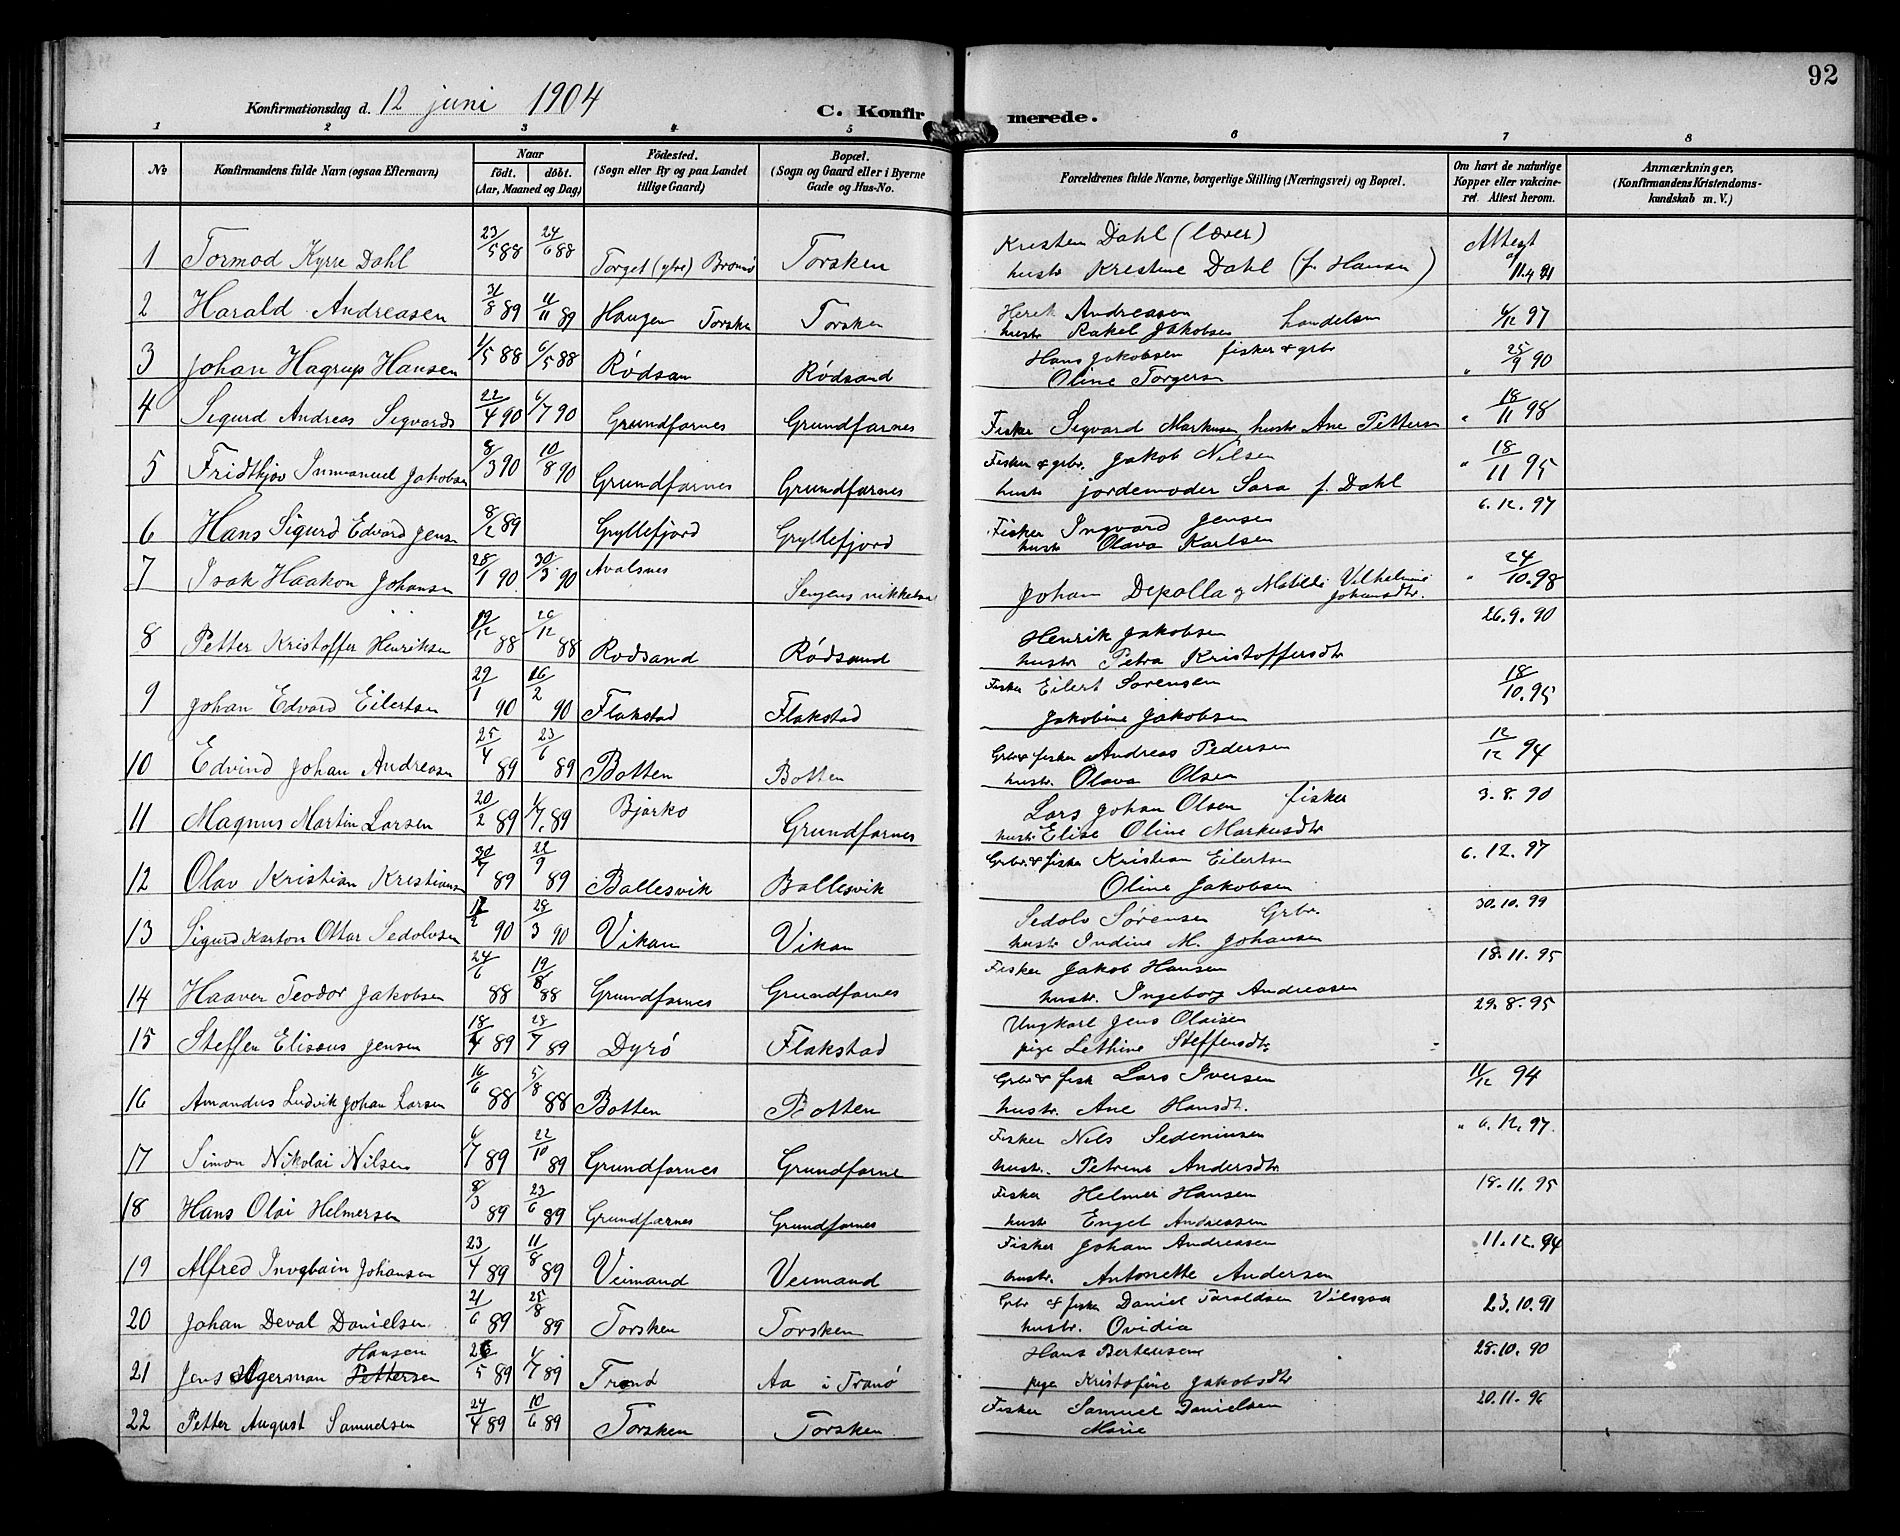 92
Konfirmationsdag d. 12 juni 1904
C. Konfirmerede.
1 2 3 4 5 6 7 8
No
Konfirmandens fulde Navn (ogsaa Efternavn)
Naar
født. døbt.
(Aar, Maaned og Dag)
Fødested.
(Sogn eller By og paa Landet
tillige Gaard)
Bopæl.
(Sogn og Gaard eller i Byerne
Gade og Hus-No.
Forældrenes fulde Navne, borgerlige Stilling (Næringsvei) og Bopæl.
Om havt de naturlige
Kopper eller vakcine-
ret. Attest herom.
Anmærkninger.
(Konfirmandens Kristendoms-
kundskab m. V.)
1 Tormod Kyrre Dahl 23/5 88 24/6 88 Torget (ytre) Brønø Torsken Kristen Dahl (lærer) Attest af
hustr Kristine Dahl (f. Hansen) 11.4 91
2 Harald Andreasen 31/8 89 11/11 89 Haugen Torsken Torsken Andreasen handelsm 4/12 97
hustr Rakel Jakobsen
3 Johan Hagrup Hansen 1/5 88 6/5 88 Rødsan Rødsand Hans Jakobsen fisker & grbr " 25/9 90
Oline Torgersn
4 Sigurd Andreas Sigvards 22/4 90 6/7 90 Grundfarnes Grundfarnes Fisker Sigvard Markusen hustr Ane Petters " 18/11 98
5 Fridthjov Immanuel Jakobsn 8/3 90 10/8 90 Grundfarnes Grundfarnes Fisker & grbr. Jakob Nilsen " 18/11 95
hustr jordemoder Sara f. Dahl
6 Hans Sigurd Edvard Jensn 8/2 89 Gryllefjord Gryllefjord Fisker Ingvard Jensen 6.12.97
hustr Olava Karlsen
7 Isak Haakon Johansen 28/1 90 30/3 90 Avalsnes Senjens nikkelv Johan Depalla og Matilde Vilhelmine " 24/10.98
Johansdtr.
8 Petter Kristoffer Henriksen 19/12 88 26/12 88 Rodsand Rødsand Henrik Jakobsen 26.9.90
hustr Petra Kristoffersdtr
9 Johan Edvard Eilertsen 29/1 90 16/2 90 Flakstad Flakstad Fisker Eilert Sørensen 18/10.95
Jakobine Jakobsen
10 Edvind Johan Andreasen 25/4 89 23/6 89 Botten Botten Grbr & fisker Andreas Pedersen 12/12 94
hustr. Olava Olsen
11 Magnus Martin Larsen 20/2 89 1/7.89 Bjarkø Grundfarnes Lars Johan Olsen fisker 3.8.90
hustr Elise Oline Markusdtr
12 Olav Kristian Kristiansn 30/7 89 22/9 89 Ballesvik Ballesvik Grbr. & fisker Kristian Eilertsen 6.12.97
Oline Jakobsen
13 Sigurd Karton Ottar Sedolvsen 17/2 90 28/3 90 Vikan Vikan Sedolv Sørensen Grbr. 30.10.99
hustr Indine M. Johansen
14 Haaver Teodor Jakobsen 24/6 88 19/8 88 Grundfarnes Grundfarnes Fisker Jakob Hansen 18.11.95
hustr. Ingeborg Andreasen
15 Steffen Elisæus Jensen 18/4 89 28/7 89 Dyrø Flakstad Ungkarl Jens Olaisen 29.8.95
pige Lethine Steffensdtr
16 Amandus Ludvik Johan Larsen 16/6 88 5/8 88 Botten Botten Grbr & fisk Lars Iversen 11/12 94
hustr. Ane Hansdt.
17 Simon Nikolai Nilsen 6/7 89 22/10 89 Grundfarnes Grundfarne Fisker Nils Sedeniusen " 6.12.97
hustr. Petrine Andersdtr
18 Hans Olai Helmersen 8/3 89 23/6 89 Grundfarnes Grundfarnes Fisker Helmer Hansen 18.11.95
hustr Engel Andreasen
19 Alfred Johansen 23/4 89 11/8 89 Veimand Veimand Fisker Johan Andreasen 11.12.94
hustr. Antonette Andersen
20 Johan Deval Danielsen 21/6 89 25/8 89 Torsken Torsken Grbr & fisker Daniel Taraldsen 23.10.91
hustr. Ovidia
Hansen
21 Jens Agerman Pettersen 26/5 89 1/7 89 Trand Aa i Tranø Hans Berteusen 28.10.90
pige Kristofine Jakobsdtr
22 Petter August Samuelsen 24/4 89 10/6 89 Torsken Torsken Fisker Samuel Danielsen 20.11.96
Marie